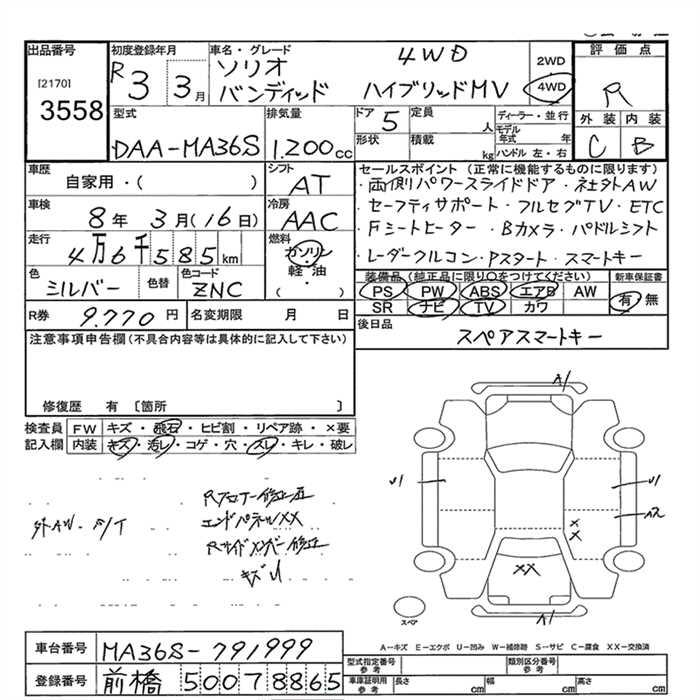 出品番号
[2170]
3558
初度登録年月
R3 3月
車名・グレード
ソリオ 4WD
バンディット ハイブリッドMV
2WD
4WD
評価点
R
外装 内装
C B
型式
DAA-MA36S
排気量
1.200cc
ドア 5
定員 人
形状
積載 kg
ディーラー・並行
モデル年式 年
ハンドル 左・右
車歴
自家用・( )
シフト
AT
車検
8年 3月(16日)
冷房
AAC
走行
4万6千585km
燃料
ガソリン
軽・油
( )
色
シルバー
色替
色コード
ZNC
R券 9.770円
名変期限 月 日
セールスポイント(正常に機能するものに限ります)
・両側パワースライドドア・社外AW
・セーフティサポート・フルセグTV・ETC
・Fシートヒーター・Bカメラ・パドルシフト
・レーダークルコン・Pスタート・スマートキー
装備品(純正品に限り○をつけてください)
PS PW ABS エアB AW
SR ナビ TV カワ
新車保証書
有 無
後日品
スペアスマートキー
注意事項申告欄(不具合内容等は具体的に記入して下さい)
修復歴 有 〔箇所 〕
検査員記入欄
FW キズ・飛石・ヒビ割・リペア跡・×要
内装 キズ・汚レ・コゲ・穴・スレ・キレ・破レ
外AW・S/T
Rフロアー修正歪
エンドパネルXX
Rサイドメンバー修正
キズU
A1
U1
U1
A2
×
×
XX
A1
スペア
A-キズ E-エクボ U-凹み W-補修跡 S-サビ C-腐食 XX-交換済
車台番号 MA36S-791999
登録番号 前橋 50078865
型式指定番号 参考
類別区分番号 参考
車庫証明用 参考
長さ cm
幅 cm
高さ cm